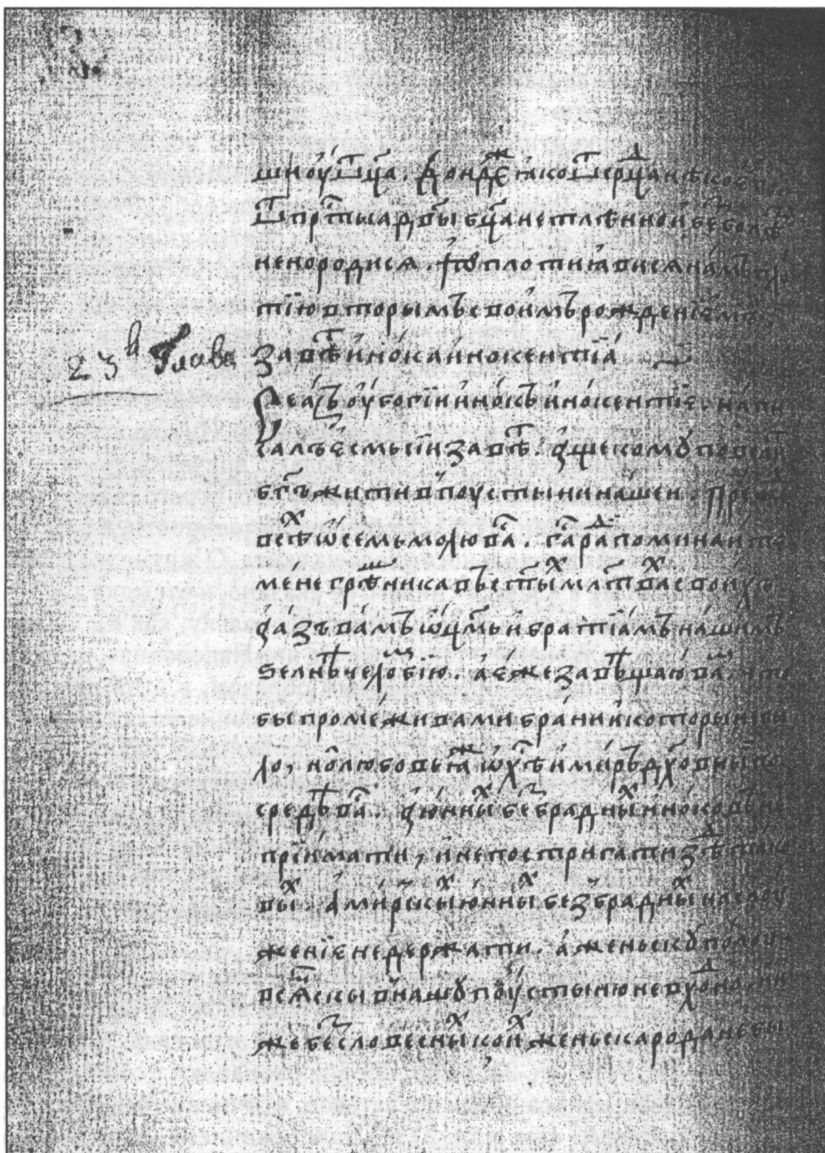 шиоу ѿца. донⷣеже ꙗко ѿ серⷣца
ѿ прⷭ҇тыѧ дв҃ы бц҃а нетлѣнно и беⷥ болѣ
нено родисѧ. по плоти ꙗвисѧ намъ
тїю вторымъ своимъ рожденїемъ
23ꙗ Глава
завѣⷮ инока инокентїа
се азъ оубогїи инокъ инокентїе. напи
салъ есмь сїи завѣⷮ. аще комꙋ повелиⷮ
бг҃ъ жити в поустыни нашеи. преⷤⷣе
всеⷯ ѡ семъ молю ваⷭ. гⷭ҇а раⷣ поминаите
мене грѣшника въ ст҃ыⷯ мл҃твⷶ своихъ
а азъ вамъ ѡц҃мъ и братїамъ нашимъ
ѕелнѣ челоⷨ бїю. а се же завѣщаю ваⷨ. что
бы промежи вами брани и которы не бы
ло, но любовь бы ꙗже ѡ хⷭ҇ѣ и миръ дх҃овныи по
средѣ ваⷭ. а юнныⷯ беⷥбрадныⷯ иноковъ не
прїимати, и не постригати здѣⷭ тако
выⷯ. а мирьскыⷯ юнныⷯ безбрадныⷯ на слоу
женїе не держати. а женьскꙋ полоу
всѧчⷭскы в нашꙋ поустыню не вхоⷣно. ни
же бесловесныⷯ коиⷯ женьска рода не бы